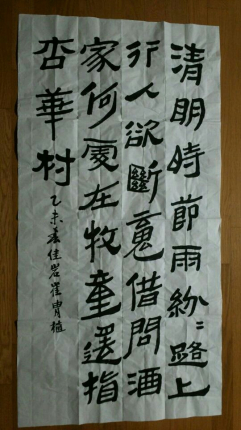 清明時節雨紛〻路上
行人欲斷魂借問酒
家何處在牧童遙指
杏華村
乙未春佳岩崔胄植